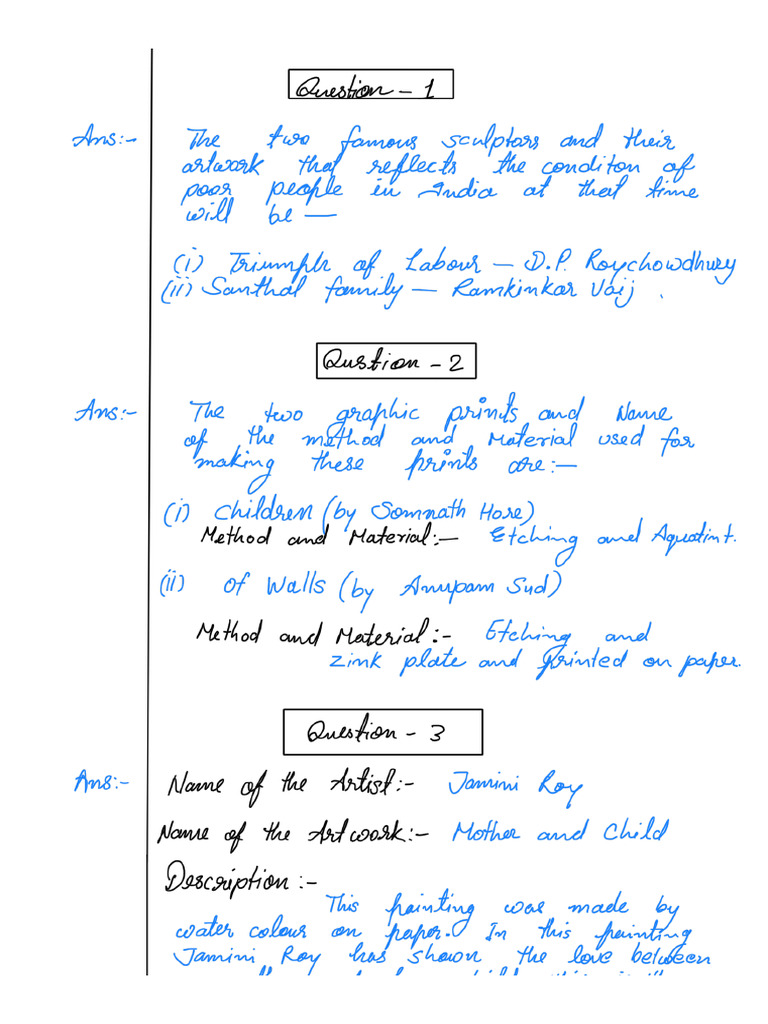 Question - 1
Ans:- The two famous sculptors and their
artwork that reflects the conditon of
poor people in India at that time
will be —
(i) Triumph of Labour — D.P. Roychowdhury
(ii) Santhal family — Ramkinkar Vaij .
Qustion - 2
Ans:- The two graphic prints and Name
of the method and Material used for
making these prints are:—
(i) Children (by Somnath Hore)
Method and Material:— Etching and Aquatint.
(ii) of Walls (by Anupam Sud)
Method and Material:- Etching and
zink plate and printed on paper.
Question - 3
Ans:- Name of the Artist:- Jamini Roy
Name of the Artwork:- Mother and Child
Description:-
This painting was made by
water colour on paper. In this painting
Jamini Roy has shown the love between